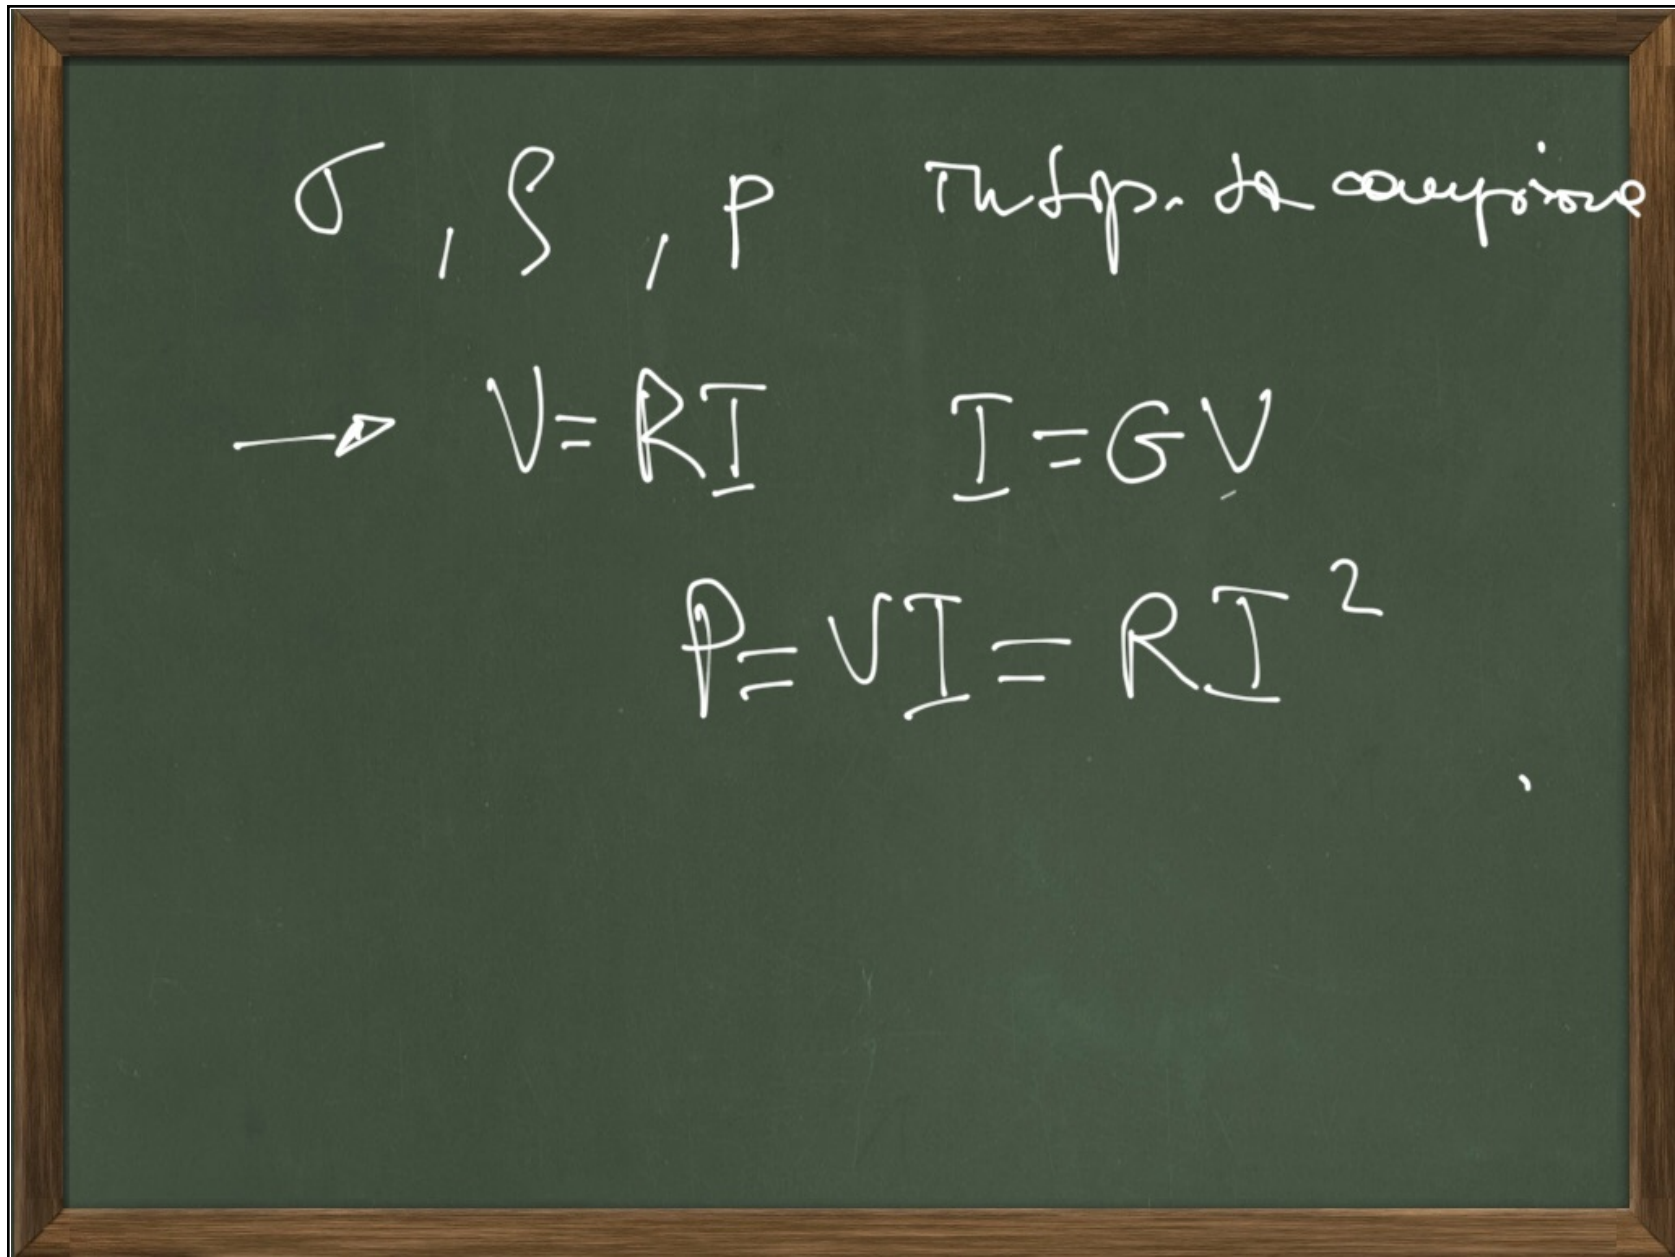 σ, ρ, p indip. da campione
→ V = RI I = GV
P = VI = RI²